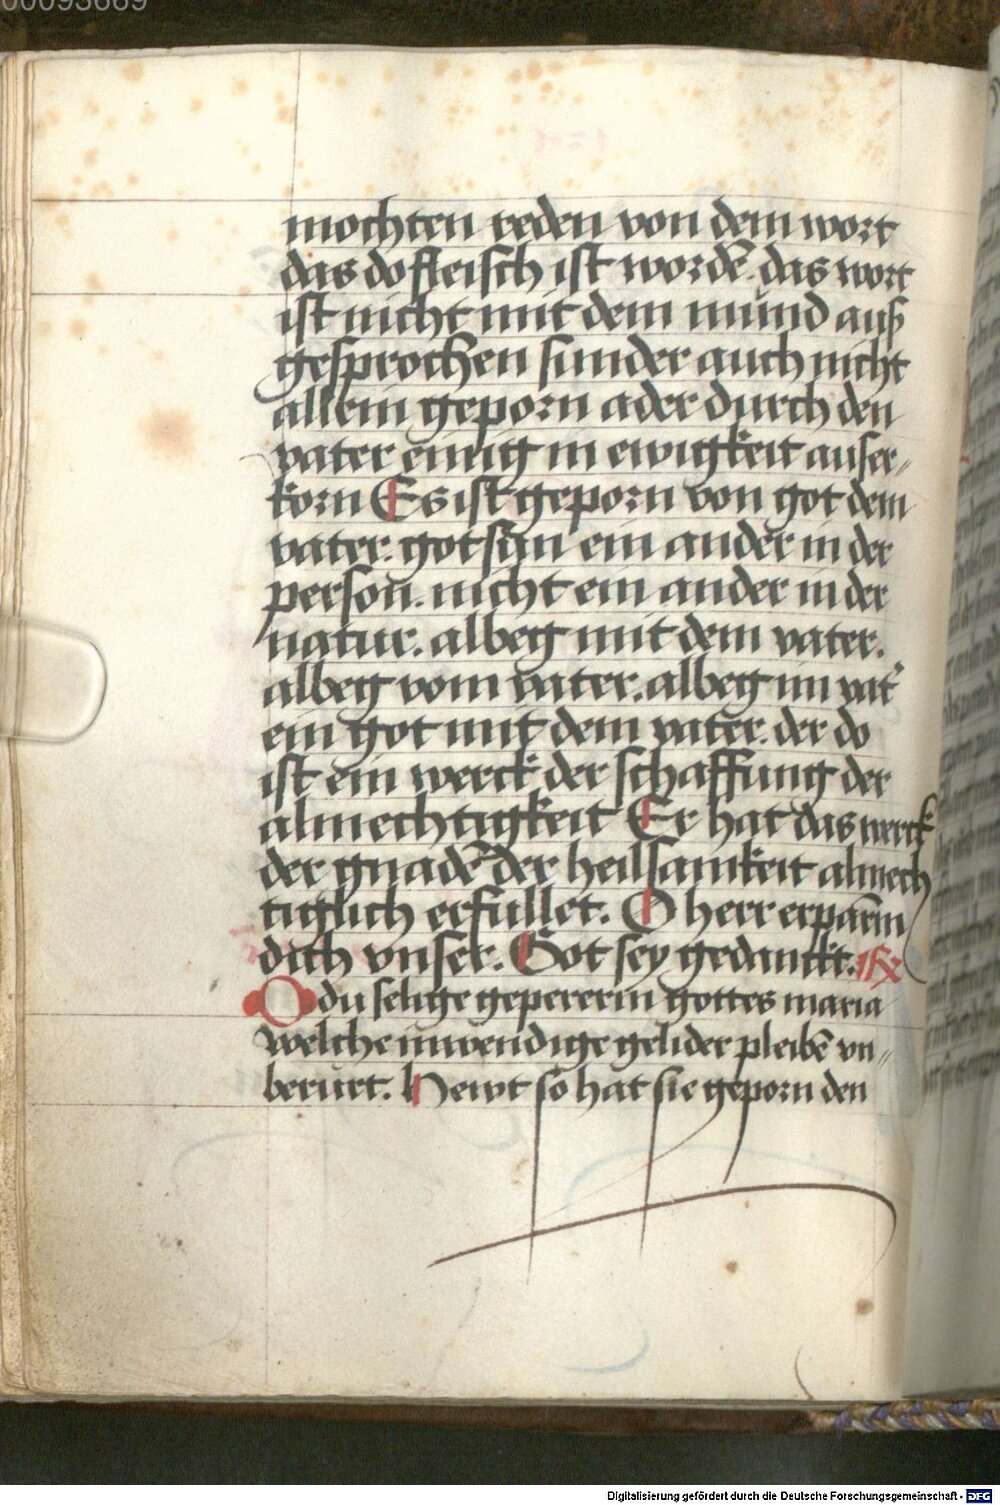 00093669
mochten reden von dem wort
das do fleisch ist wordē. das wort
ist nicht mit dem mund auß
gesprochen sunder auch nicht
allein geporn ader durch den
vater einig in ewigkeit auser⸗
korn Es ist geporn von got dem
vater. got sun ein ander in der
person. nicht ein ander in der
natur. albeg mit dem vater.
albeg vom vater. albeg im vat᷑
ein got mit dem vater. der do
ist ein werck der schaffung der
almechtigkeit Er hat das werck
der gnadē der heilsamkeit almech
tiglich erfullet. O herr erparm
dich vnser. Got sey gedanckt.
O du selige gepererin gottes maria
welche inwendige gelider pleibē vn⸗
berurt. Hewt so hat sie geporn den
Digitalisierung gefördert durch die Deutsche Forschungsgemeinschaft - DFG